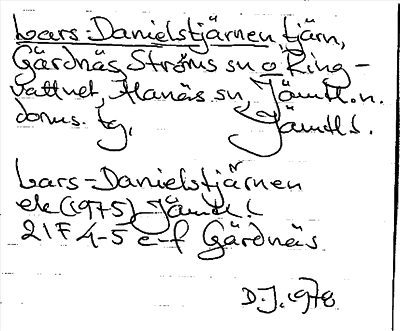 Lars-Danielstjärnen tjärn,
Gärdnäs Ströms sn o Ring-
vattnet, Alanäs sn, Jämtl.n.
doms. tg, Jämtl l.
Lars-Danielstjärnen
ek (1975) Jämtl l
21F 4-5 e-f Gärdnäs
D.J. 1978